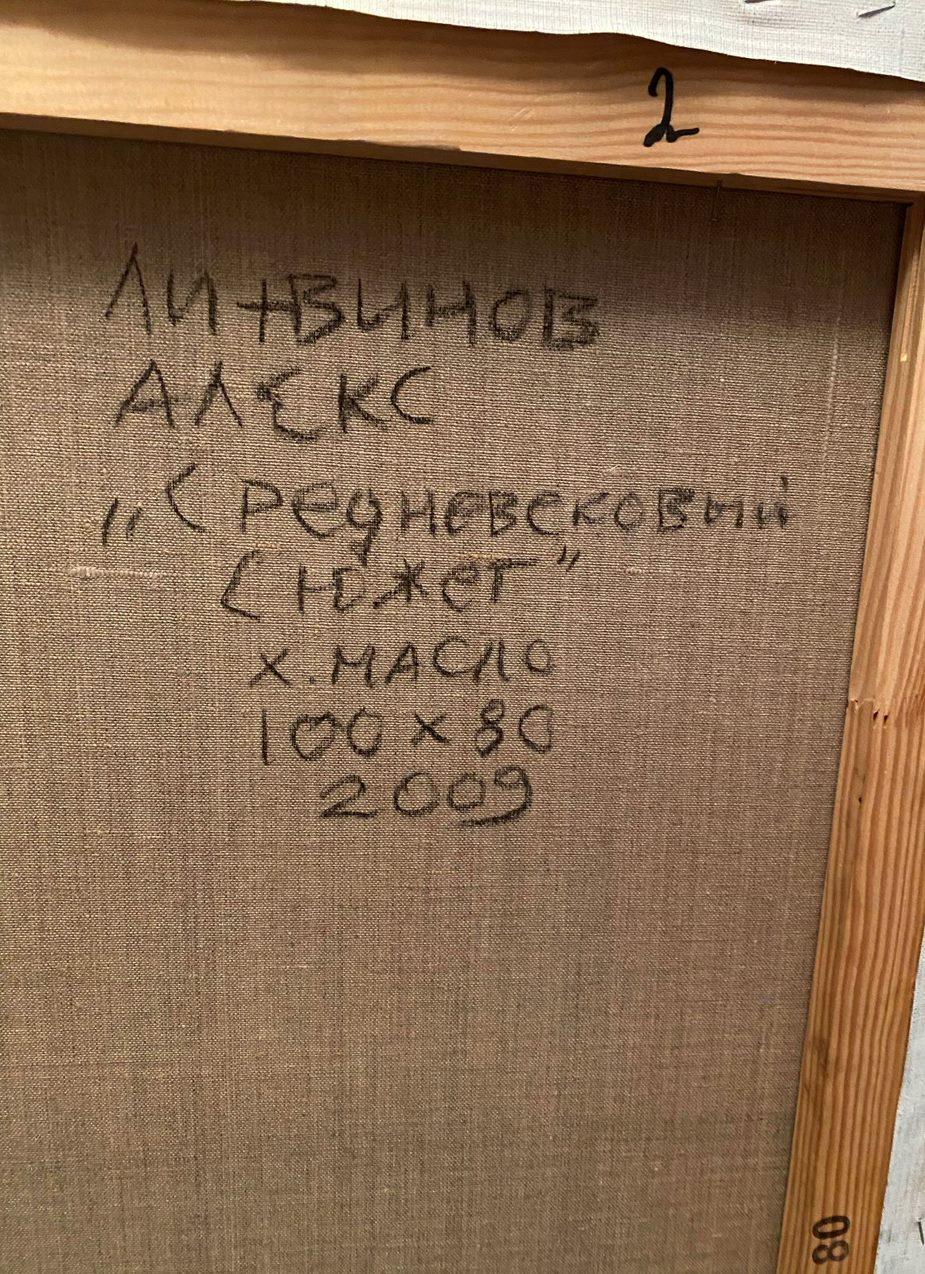 2
ЛИТВИНОВ
АЛЕКС
„Средневековый
Сюжет"
х. МАСЛО
100 х 80
2009
80